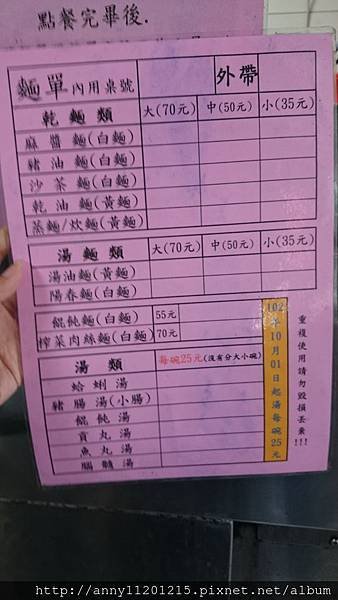 點餐完畢後.
麵單 內用桌號 外帶
乾麵類 大(70元) 中(50元) 小(35元)
麻醬麵(白麵)
豬油麵(白麵)
沙茶麵(白麵)
乾油麵(黃麵)
蒸麵/炊麵(黃麵)
湯麵類 大(70元) 中(50元) 小(35元)
湯油麵(黃麵)
陽春麵(白麵)
餛飩麵(白麵) 55元
榨菜肉絲麵(白麵) 70元
湯類 每碗25元(沒有分大小碗)
蛤蜊湯
豬腸湯(小腸)
餛飩湯
貢丸湯
魚丸湯
腦髓湯
102年10月01日起湯每碗25元
重複使用請勿毀損丟棄!!!
http://anny11201215.pixnet.net/album